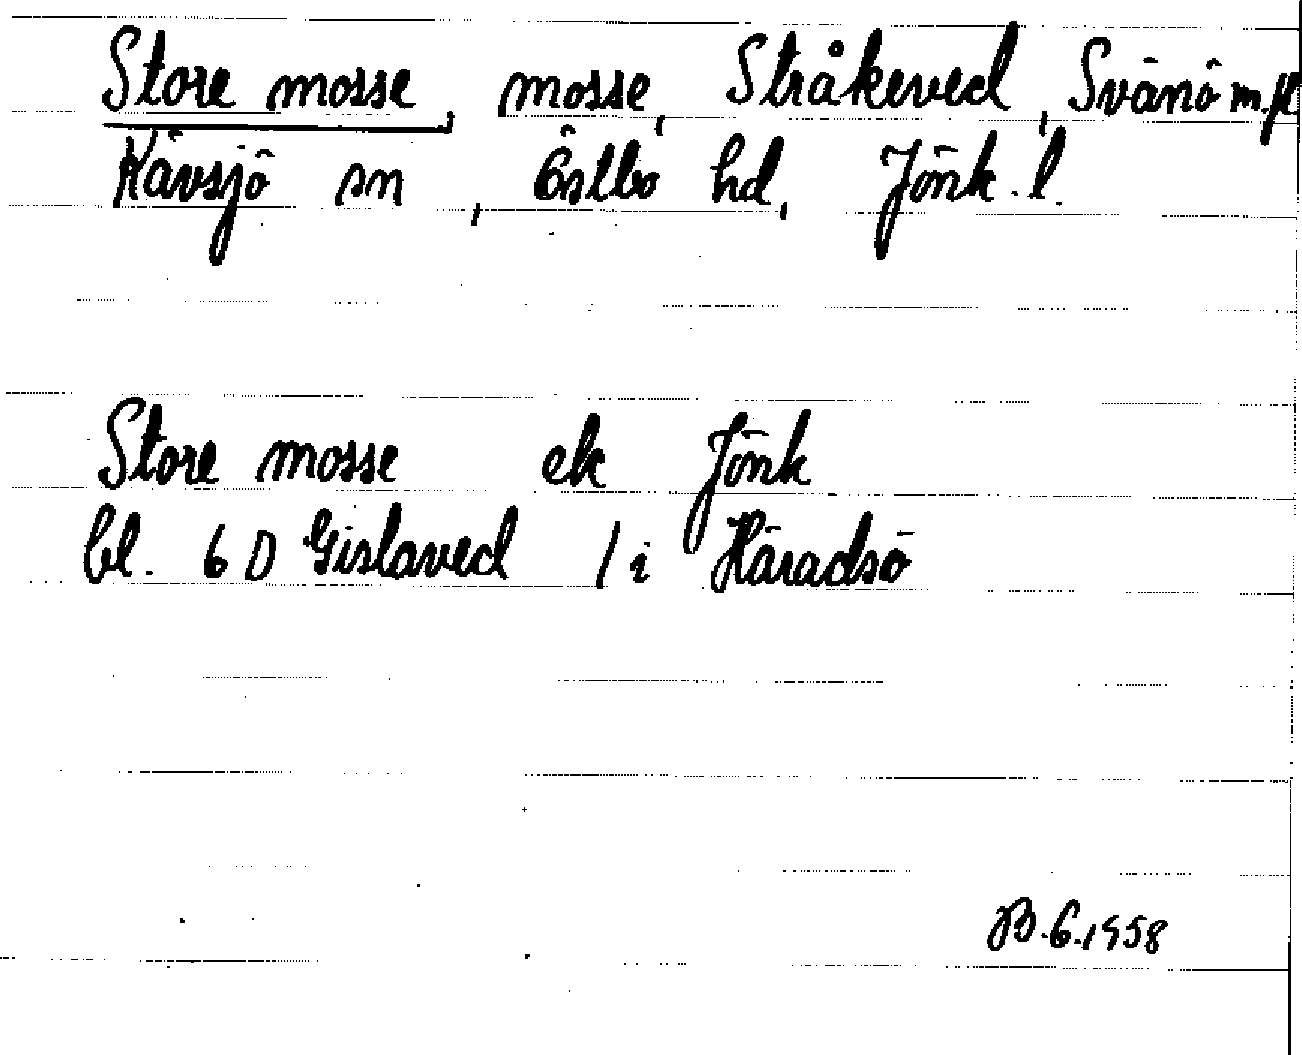 Store mosse, mosse, Stråkeved, Svänö m.fl
Kävsjö sn, Östbo hd, Jönk. l.
Store mosse ek Jönk
bl. 6 D Gislaved / i Häradsö
B.6.1958